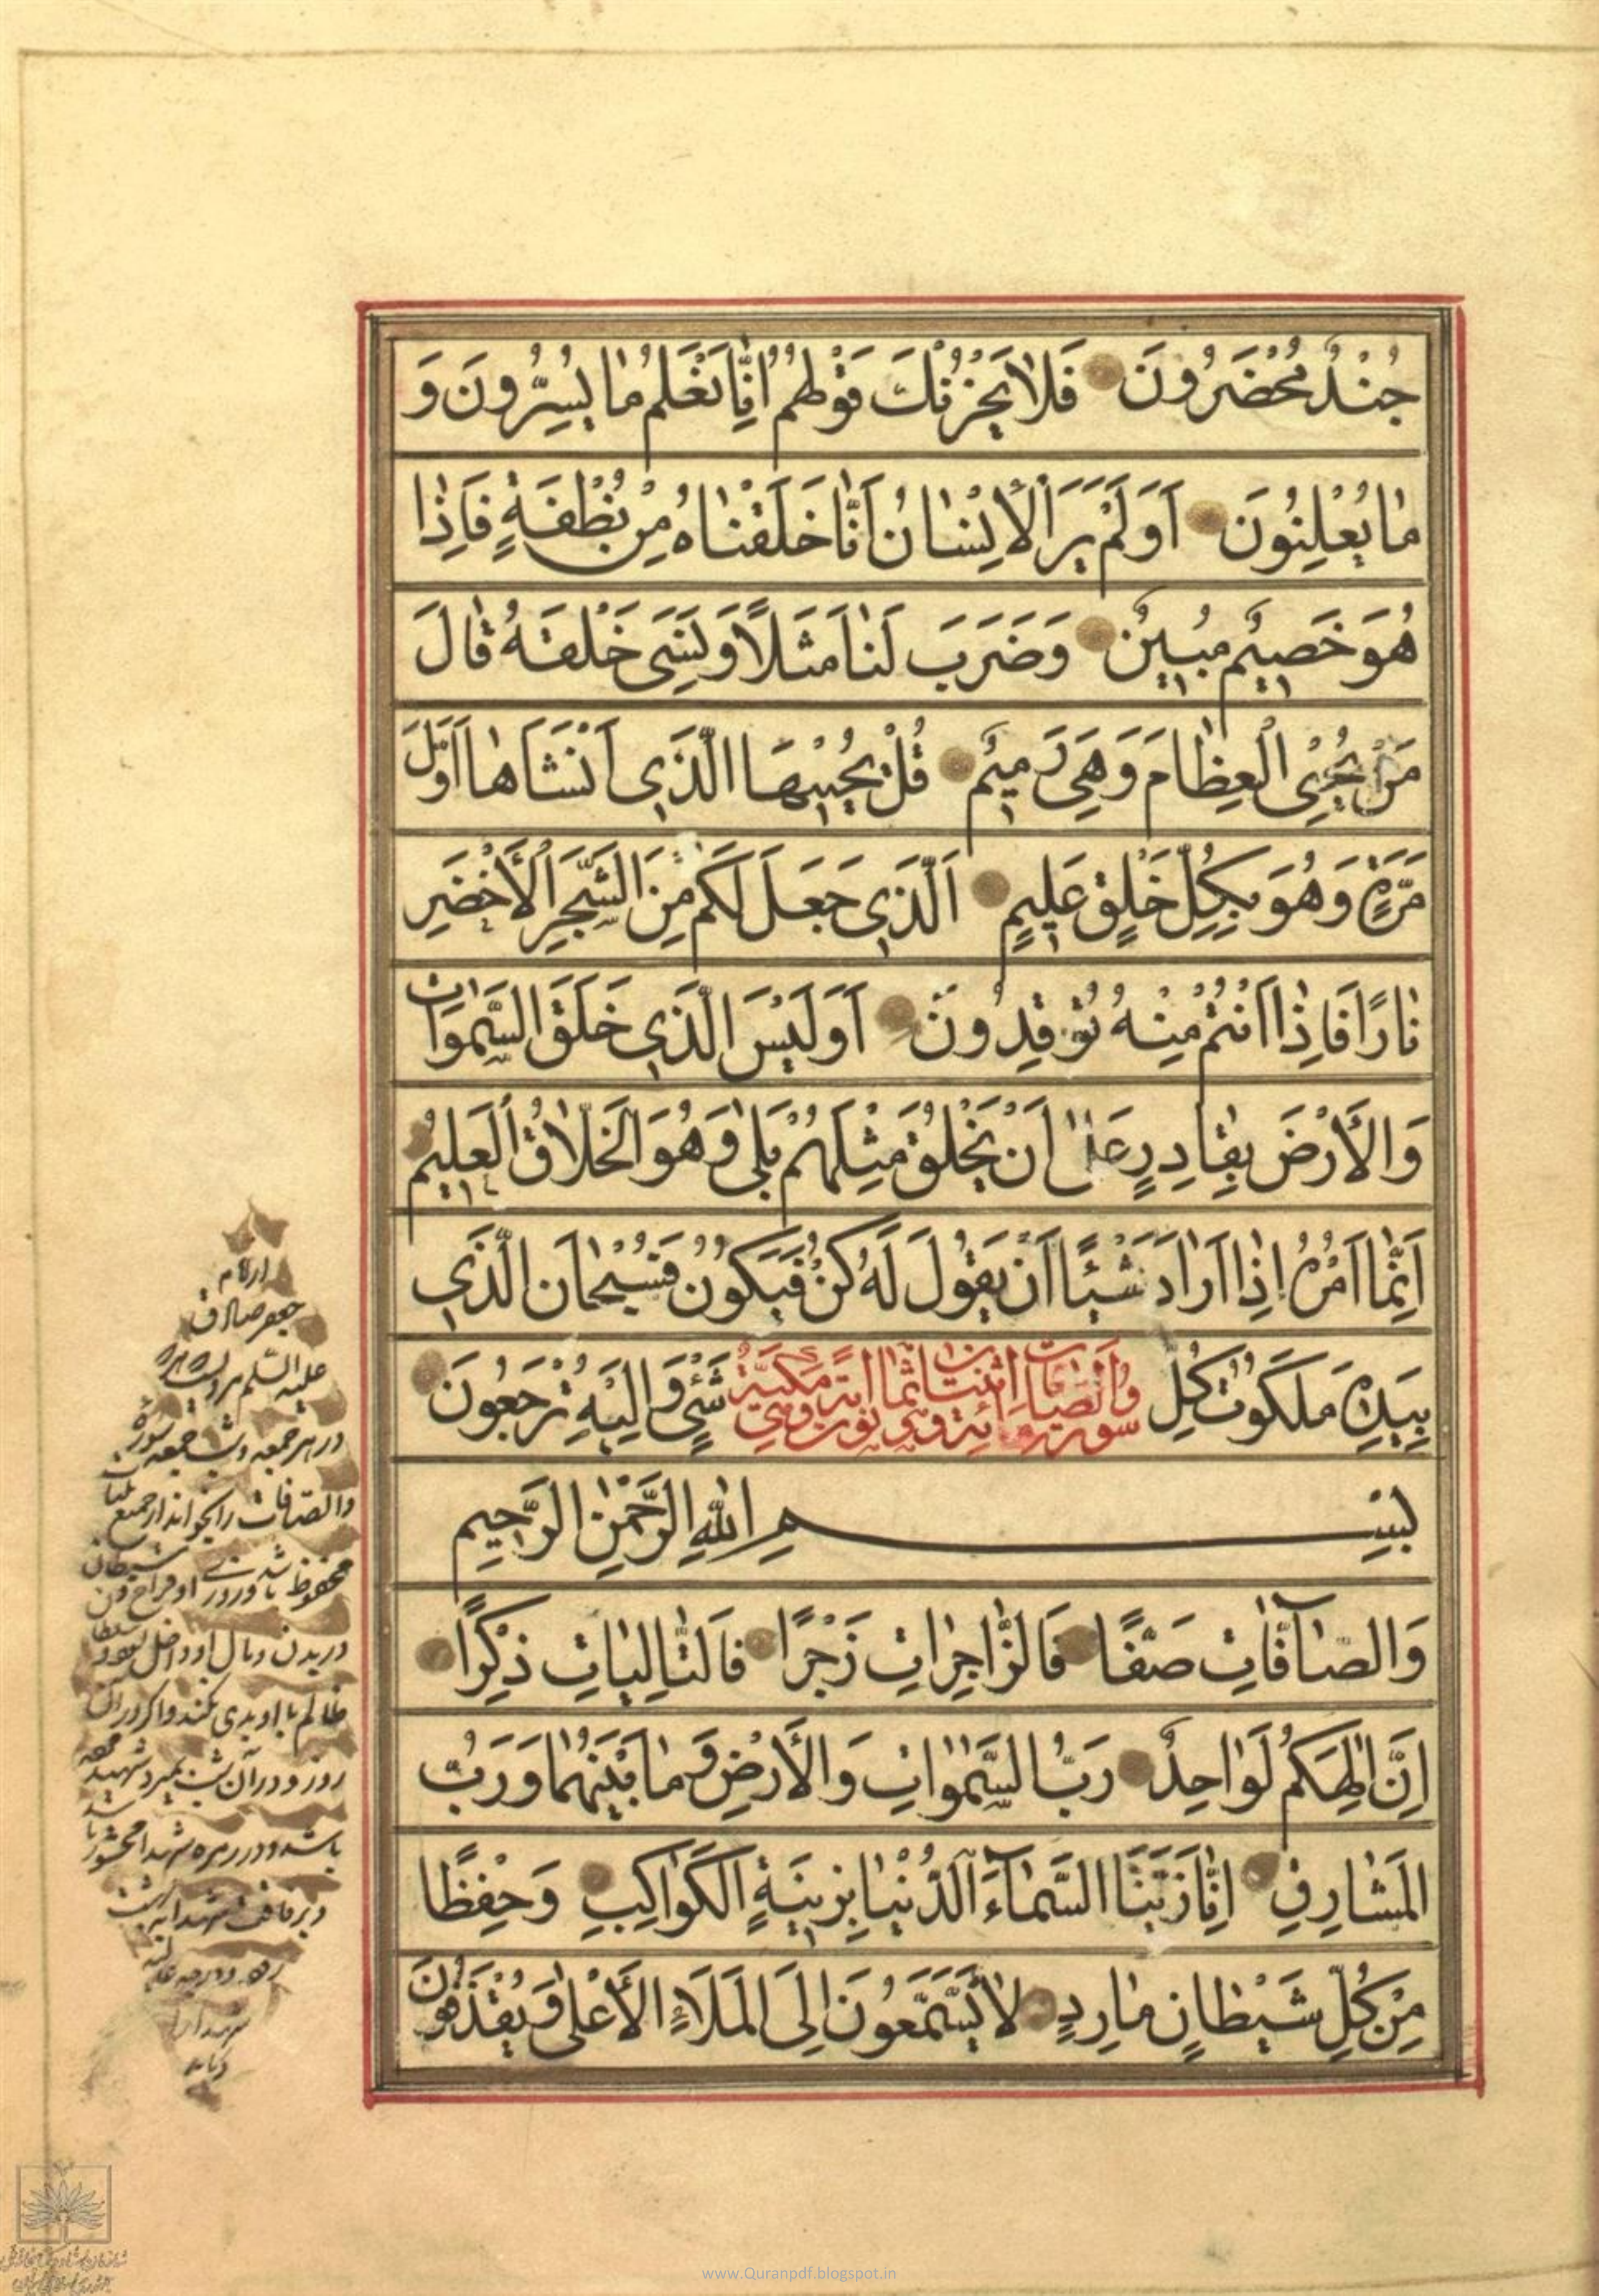 جُنْدٌ مُحْضَرُونَ فَلَا يَحْزُنْكَ قَوْلُهُمْ اِنَّا نَعْلَمُ مَا يُسِرُّونَ وَ
مَا يُعْلِنُونَ اَوَلَمْ يَرَ الْاِنْسَانُ اَنَّا خَلَقْنَاهُ مِنْ نُطْفَةٍ فَاِذَا
هُوَ خَصِيمٌ مُبِينٌ وَضَرَبَ لَنَا مَثَلًا وَنَسِىَ خَلْقَهُ قَالَ
مَنْ يُحْيِى الْعِظَامَ وَهِىَ رَمِيمٌ قُلْ يُحْيِيهَا الَّذِي اَنْشَاَهَا اَوَّلَ
مَرَّةٍ وَهُوَ بِكُلِّ خَلْقٍ عَلِيمٍ اَلَّذِي جَعَلَ لَكُمْ مِنَ الشَّجَرِ الْأَخْضَرِ
نَارًا فَاِذَا اَنْتُمْ مِنْهُ تُوقِدُونَ اَوَلَيْسَ الَّذِي خَلَقَ السَّمٰوَاتِ
وَالْأَرْضَ بِقَادِرٍ عَلٰى اَنْ يَخْلُقَ مِثْلَهُمْ بَلٰى وَهُوَ الْخَلَّاقُ الْعَلِيمُ
اِنَّمَا اَمْرُهُ اِذَا اَرَادَ شَيْئًا اَنْ يَقُولَ لَهُ كُنْ فَيَكُونُ فَسُبْحَانَ الَّذِي
بِيَدِهِ مَلَكُوتُ كُلِّ شَىْءٍ وَاِلَيْهِ تُرْجَعُونَ
سورة والصافات مائة واثنتان وثمانون اية وهى مكية
بِسْمِ اللهِ الرَّحْمٰنِ الرَّحِيمِ
وَالصَّآفَّاتِ صَفًّا فَالزَّاجِرَاتِ زَجْرًا فَالتَّالِيَاتِ ذِكْرًا
اِنَّ اِلٰهَكُمْ لَوَاحِدٌ رَبُّ السَّمٰوَاتِ وَالْأَرْضِ وَمَا بَيْنَهُمَا وَرَبُّ
الْمَشَارِقِ اِنَّا زَيَّنَّا السَّمَآءَ الدُّنْيَا بِزِينَةٍ الْكَوَاكِبِ وَحِفْظًا
مِنْ كُلِّ شَيْطَانٍ مَارِدٍ لَا يَسَّمَّعُونَ اِلَى الْمَلَاءِ الْأَعْلٰى وَيُقْذَفُونَ
ازامام
جعفر صادق
عليه السلم مرويست كه هركه
در هر جمعه وشب جمعه سورۀ
والصافات را بخواند از جميع بليات
محفوظ باشد وروزى او فراخ
در بدن ومال واولاد
ظالم با او بدى نكند واكر در آن
روز ودر آن شب بميرد شهيد
باشد ودر زمره شهدا محشور
وبرفاقت شهدا به بهشت
رود ودرجه
شهدا را
دريابد
www.Quranpdf.blogspot.in